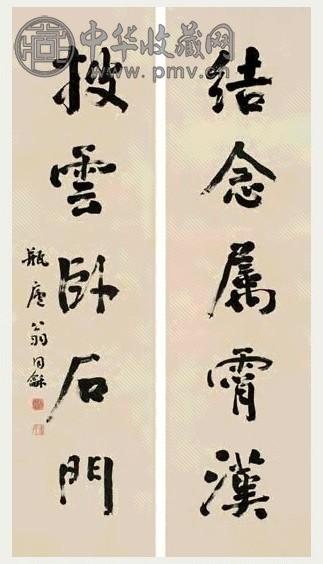 中华收藏网
www.pmv.cn
结念属霄漢
披雲卧石門
瓶廬翁同龢